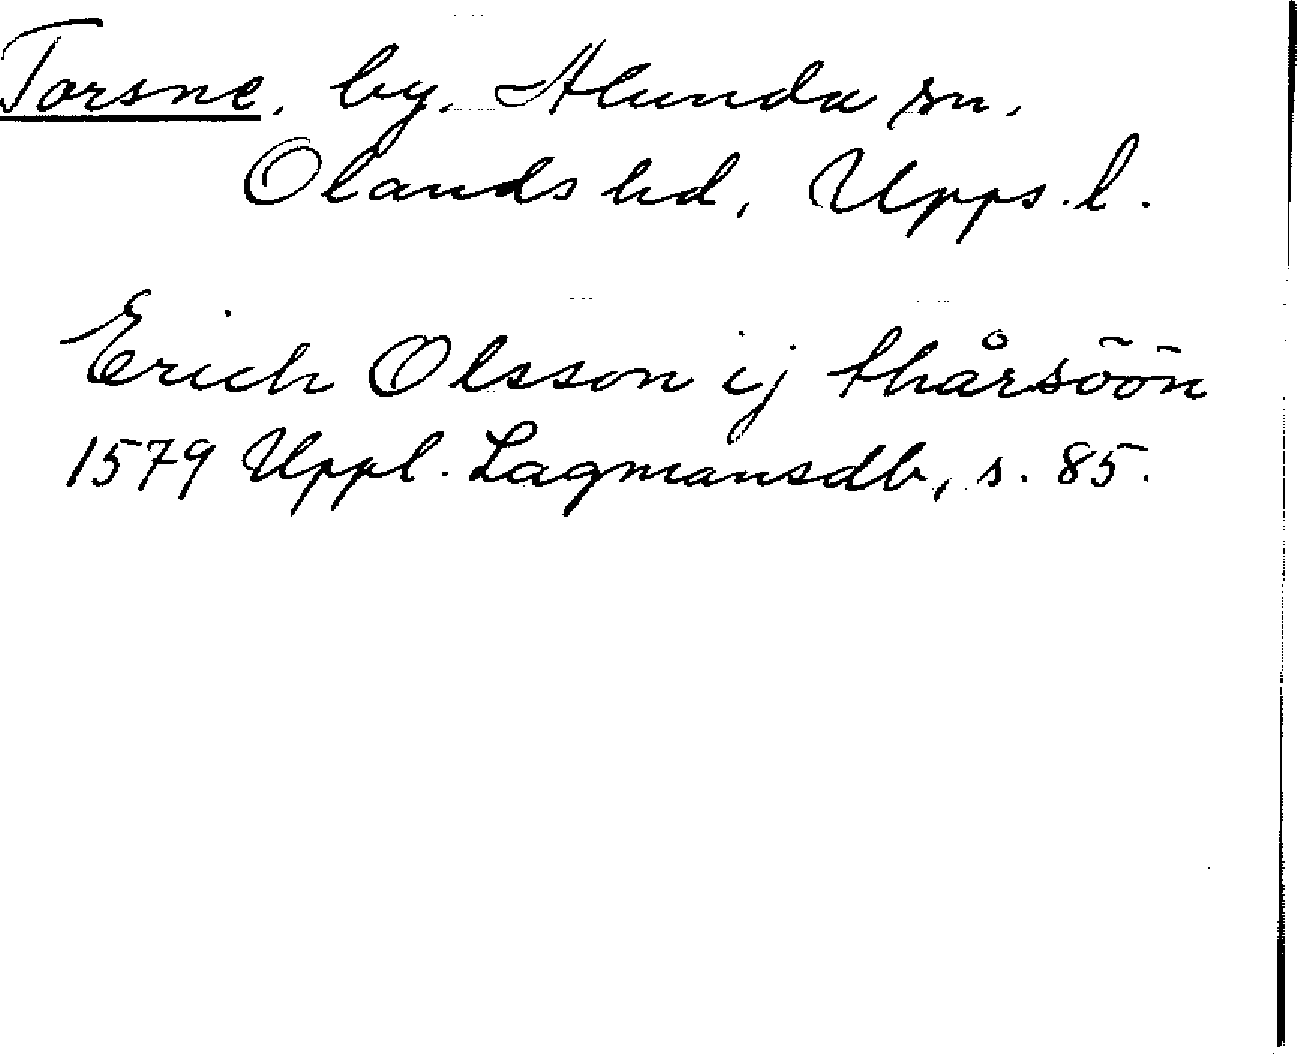 Torsne, by, Alunda sn,
Olands hd, Upps. l.
Erich Olsson ij thårsöön
1579 Uppl. Lagmansdb, s. 85.